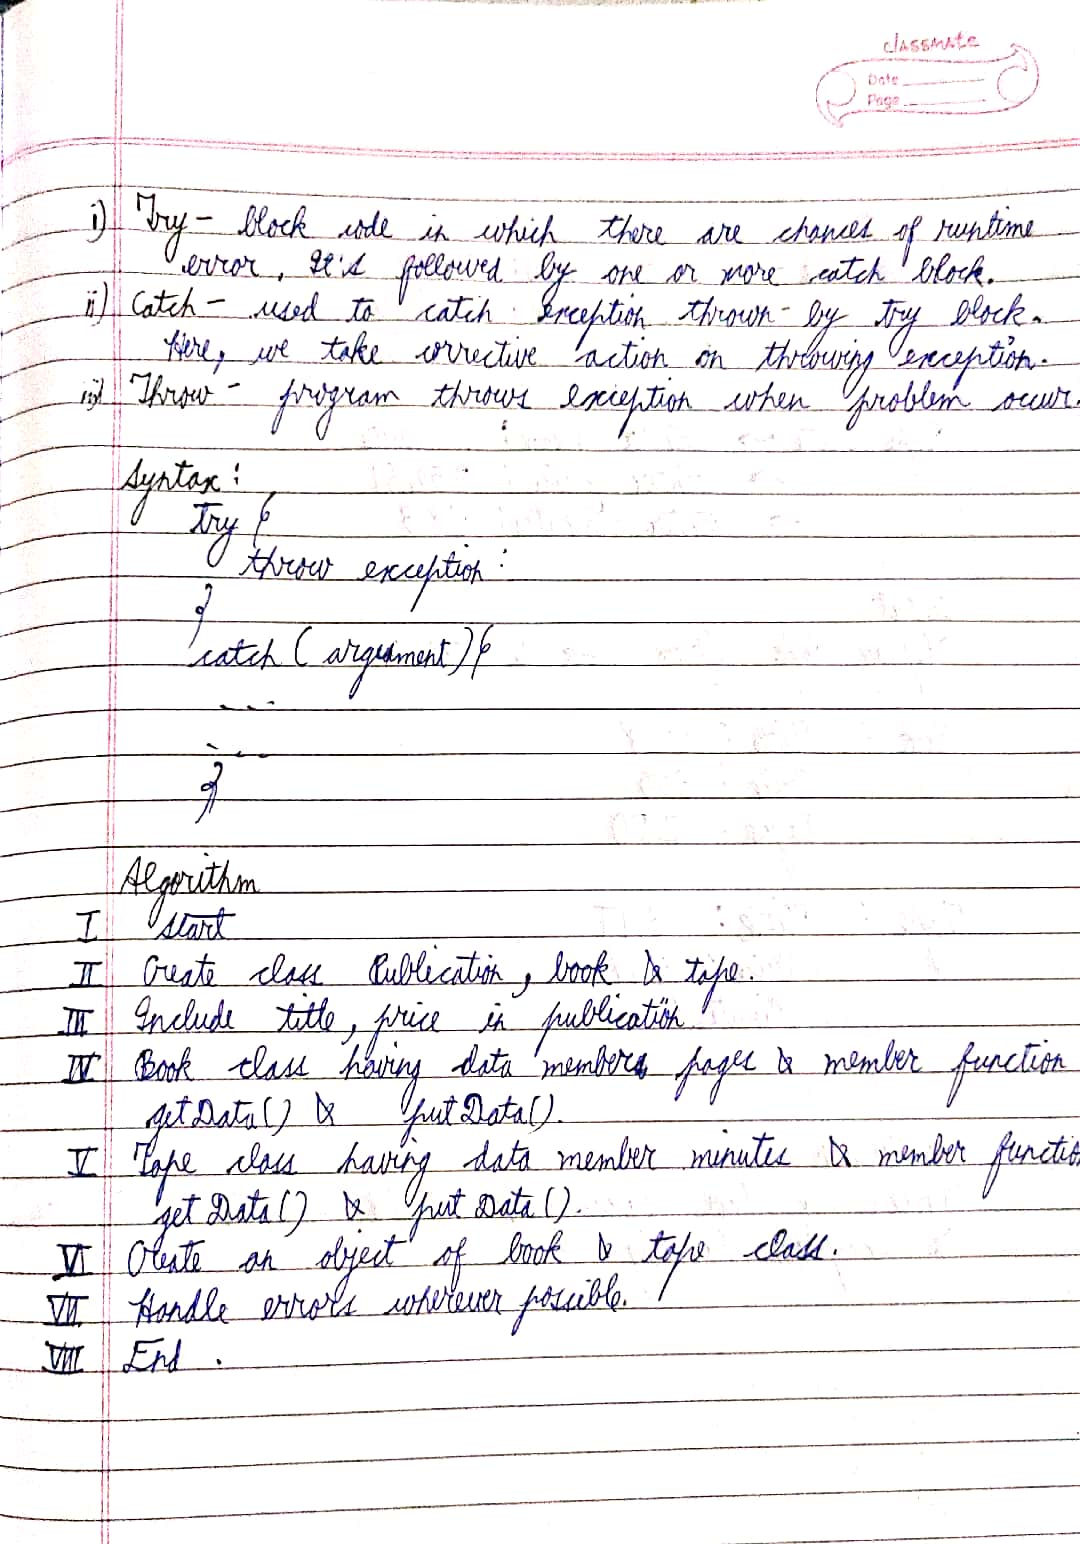 classmate
Date
Page
i) Try - block code in which there are chances of runtime
error, It's followed by one or more catch block.
ii) Catch - used to catch exception thrown by try block.
Here, we take corrective action on throwing exception.
iii) Throw - program throws exception when problem occur.
Syntax :
try {
throw exception :
}
catch ( arguement ) {
---
---
}
Algorithm
I start
II Create class Publication, book & tape.
III Include title, price in publication
IV Book class having data members pages & member function
getData() & putData().
V Tape class having data member minutes & member functio
get Data() & put Data().
VI Create an object of book & tape class.
VII Handle errors wherever possible.
VIII End .